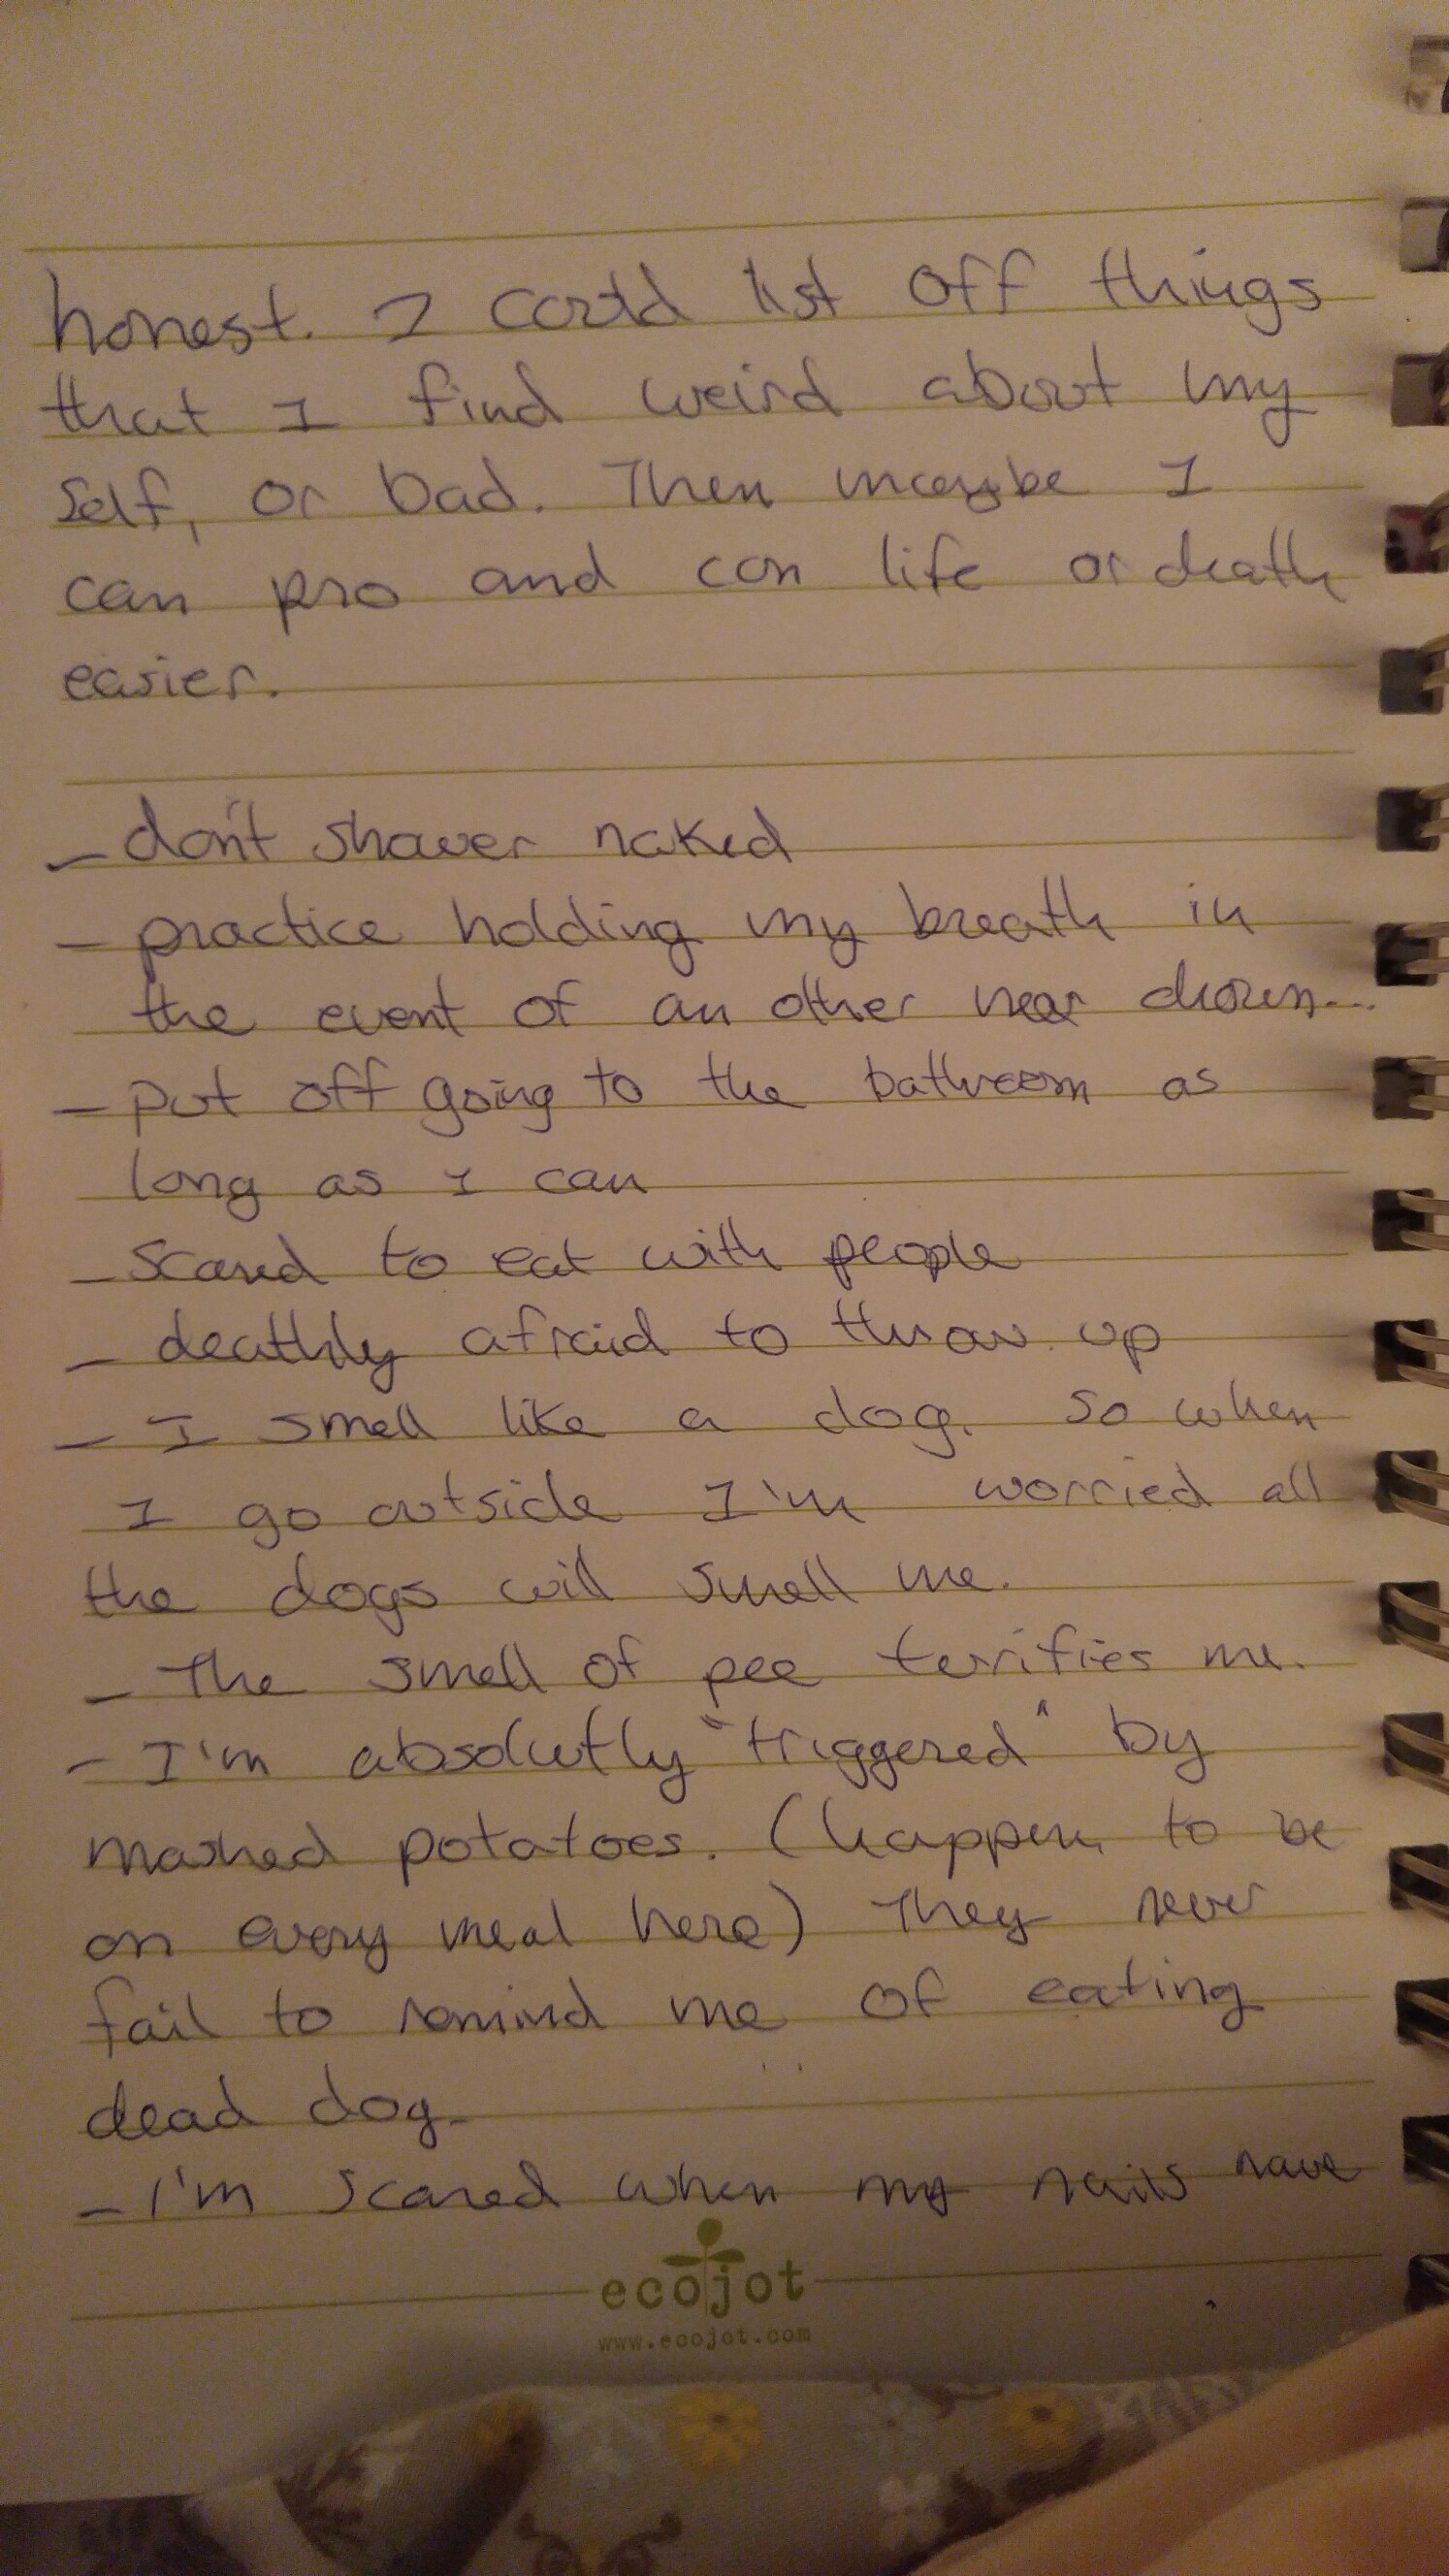 honest. I could list off things
that I find weird about my
self, or bad. Then maybe I
can pro and con life or death
easier.
- don't shower naked
- practice holding my breath in
the event of an other near drown...
- put off going to the bathroom as
long as I can
- scared to eat with people
- deathly afraid to throw up
- I smell like a dog. So when
I go outside I'm worried all
the dogs will smell me.
- The smell of pee terrifies me.
- I'm absolutly "triggered" by
mashed potatoes. (happens to be
on every meal here) They never
fail to remind me of eating
dead dog.
- I'm scared when my nails have
ecojot
www.ecojot.com